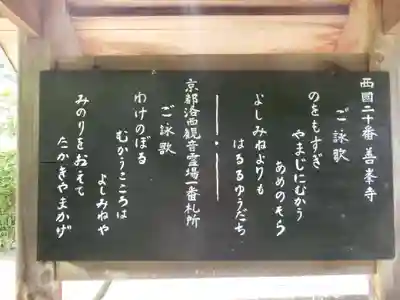 西國二十番 善峯寺
ご詠歌
のをもすぎ
やまじにむかう
あめのそら
よしみねよりも
はるるゆうだち
京都洛西観音霊場一番札所
ご詠歌
わけのぼる
むかうこころは
よしみねや
みのりをおえて
たかきやまかげ